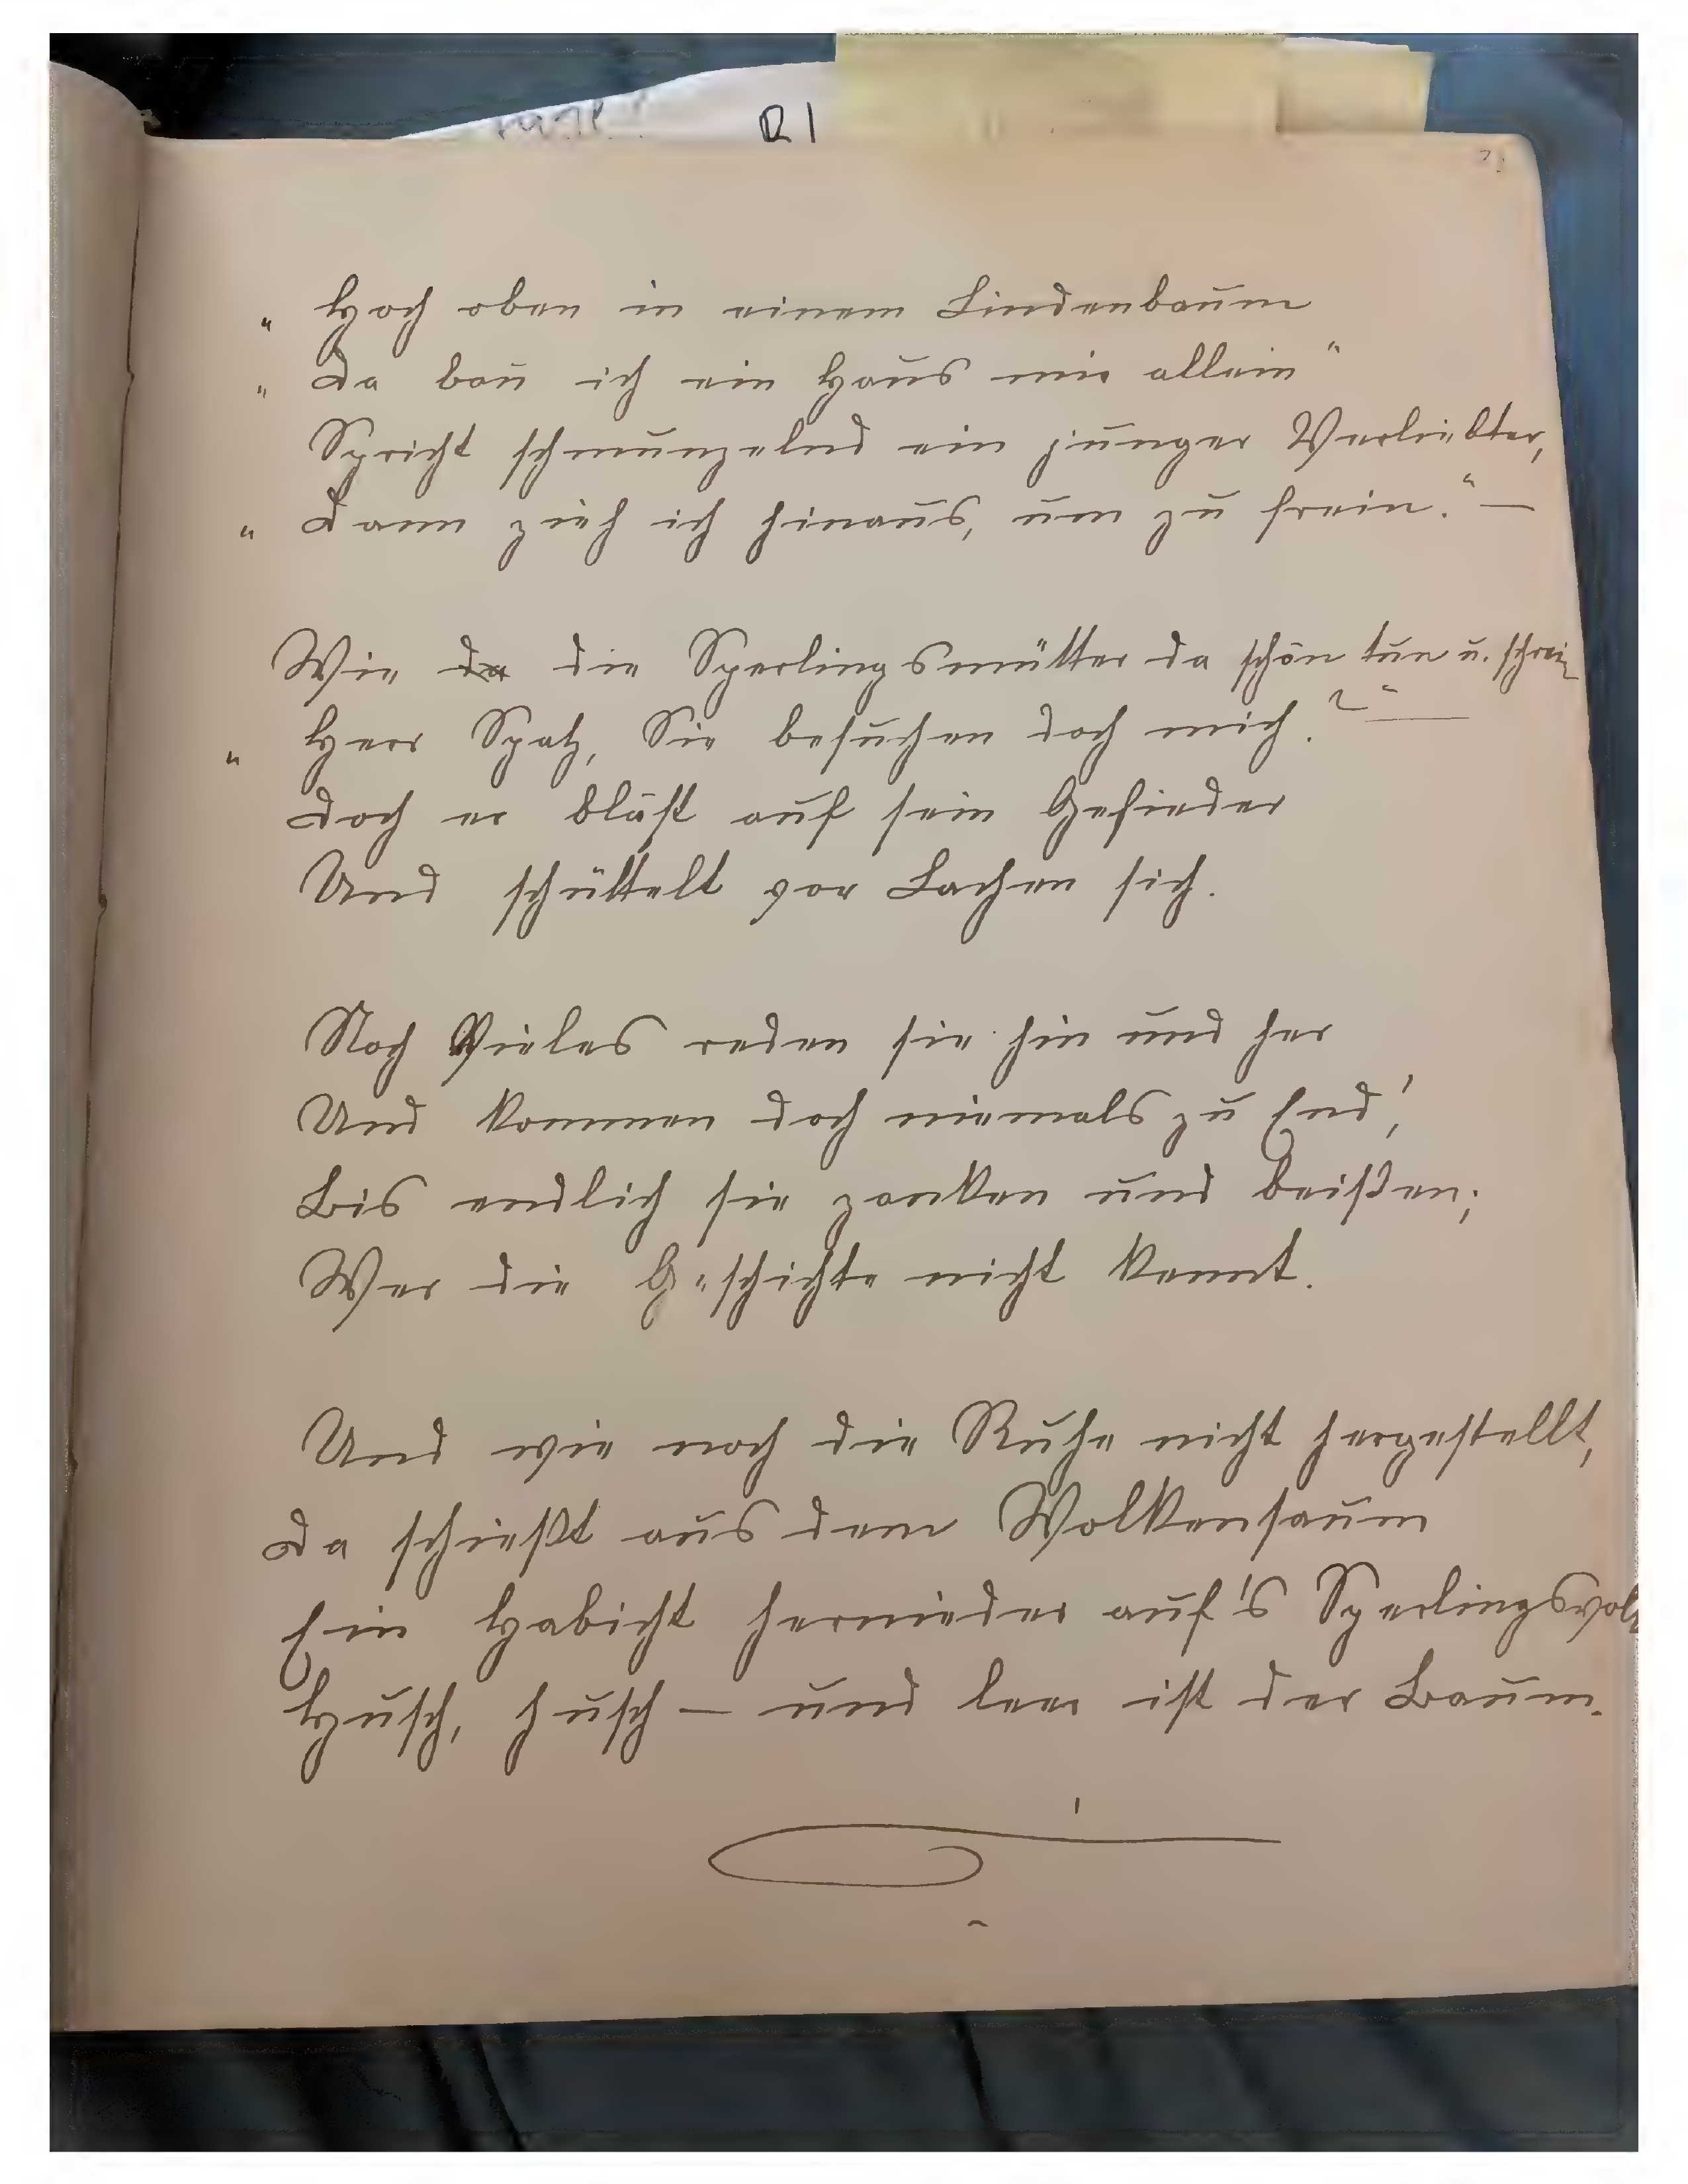 R 1
„ Hoch oben in einem Lindenbaum
„ Da bau ich ein Haus mir allein“
Spricht schmunzelnd ein junger Verliebter,
„ Dann zieh ich hinaus, um zu frein.“ —
Wie da die Sperlingsmütter da schön tun u. schrein
„ Herr Spatz, Sie besuchen doch mich?“ —
Doch er bläst auf sein Gefieder
Und schüttelt vor Lachen sich.
Noch Vieles reden sie hin und her
Und kommen doch niemals zu End',
Bis endlich sie zanken und beißen;
Wer die Geschichte nicht kennt.
Und wie noch die Ruhe nicht hergestellt,
Da schießt aus dem Wolkensaum
Ein Habicht hernieder auf's Sperlingsvolk
Husch, husch — und leer ist der Baum.